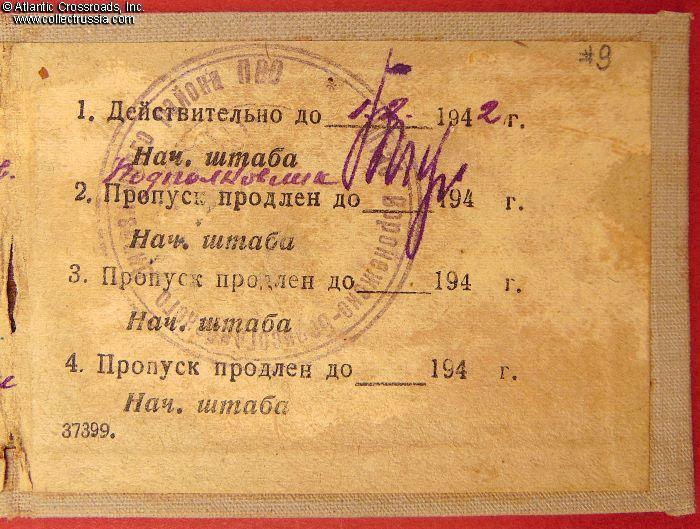 © Atlantic Crossroads, Inc.
www.collectrussia.com
#9
района ПВО
1. Действительно до 1.8. 1942 г.
Нач. штаба
Подполковник
2. Пропуск продлен до 194 г.
Нач. штаба
3. Пропуск продлен до 194 г.
Нач. штаба
4. Пропуск продлен до 194 г.
Нач. штаба
37399.